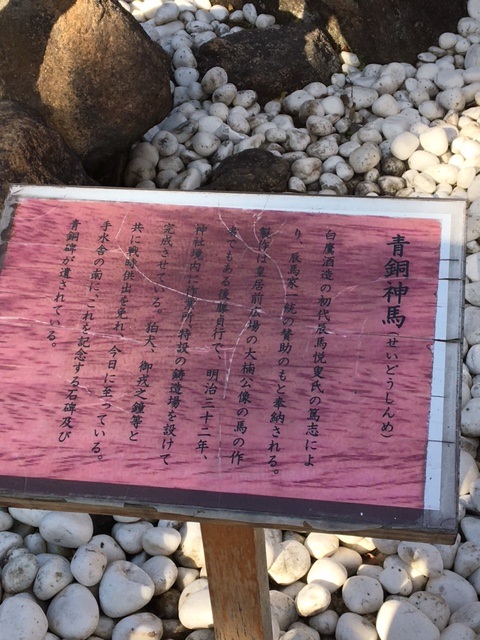 青銅神馬(せいどうしんめ)
白鷹酒造の初代辰馬悦叟氏の篤志によ
り、辰馬家一統の賛助のもと奉納される。
製作は皇居前広場の大楠公像の馬の作
者でもある後藤貞行で、明治三十二年、
神社境内の御旅所に特設の鋳造場を設けて
完成させている。狛犬、御戎之鐘等と
共に戦時供出を免れ、今日に至っている。
手水舎の南に、これを記念する石碑及び
青銅碑が遺されている。